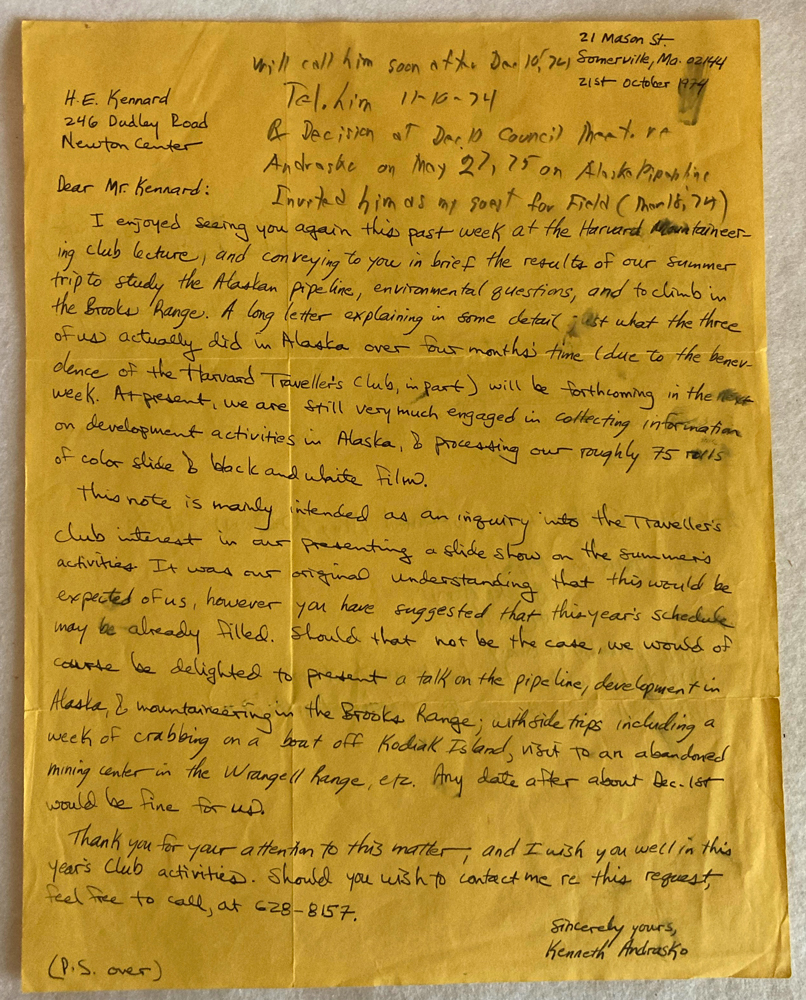 21 Mason St.
Somerville, Ma. 02144
21st October 1974
will call him soon after Dec 10, '74
Tel. him 11-10-74
& Decision at Dec 10 Council Meet. re
Andrasko on May 27, 75 on Alaska Pipeline
Invited him as my guest for Field (Mar 18, '74)
H.E. Kennard
246 Dudley Road
Newton Center
Dear Mr. Kennard:
I enjoyed seeing you again this past week at the Harvard Mountaineer-
ing club lecture, and conveying to you in brief the results of our summer
trip to study the Alaskan pipeline, environmental questions, and to climb in
the Brooks Range. A long letter explaining in some detail just what the three
of us actually did in Alaska over four months' time (due to the benev-
olence of the Harvard Traveller's Club, in part) will be forthcoming in the next
week. At present, we are still very much engaged in collecting information
on development activities in Alaska, & processing our roughly 75 rolls
of color slide & black and white film.
This note is mainly intended as an inquiry into the Traveller's
Club interest in our presenting a slide show on the summer's
activities. It was our original understanding that this would be
expected of us, however you have suggested that this year's schedule
may be already filled. Should that not be the case, we would of
course be delighted to present a talk on the pipeline, development in
Alaska, & mountaineering in the Brooks Range; with side trips including a
week of crabbing on a boat off Kodiak Island, visit to an abandoned
mining center in the Wrangell Range, etc. Any date after about Dec. 1st
would be fine for us.
Thank you for your attention to this matter, and I wish you well in this
year's Club activities. Should you wish to contact me re this request,
feel free to call, at 628-8157.
Sincerely yours,
Kenneth Andrasko
(P.S. over)